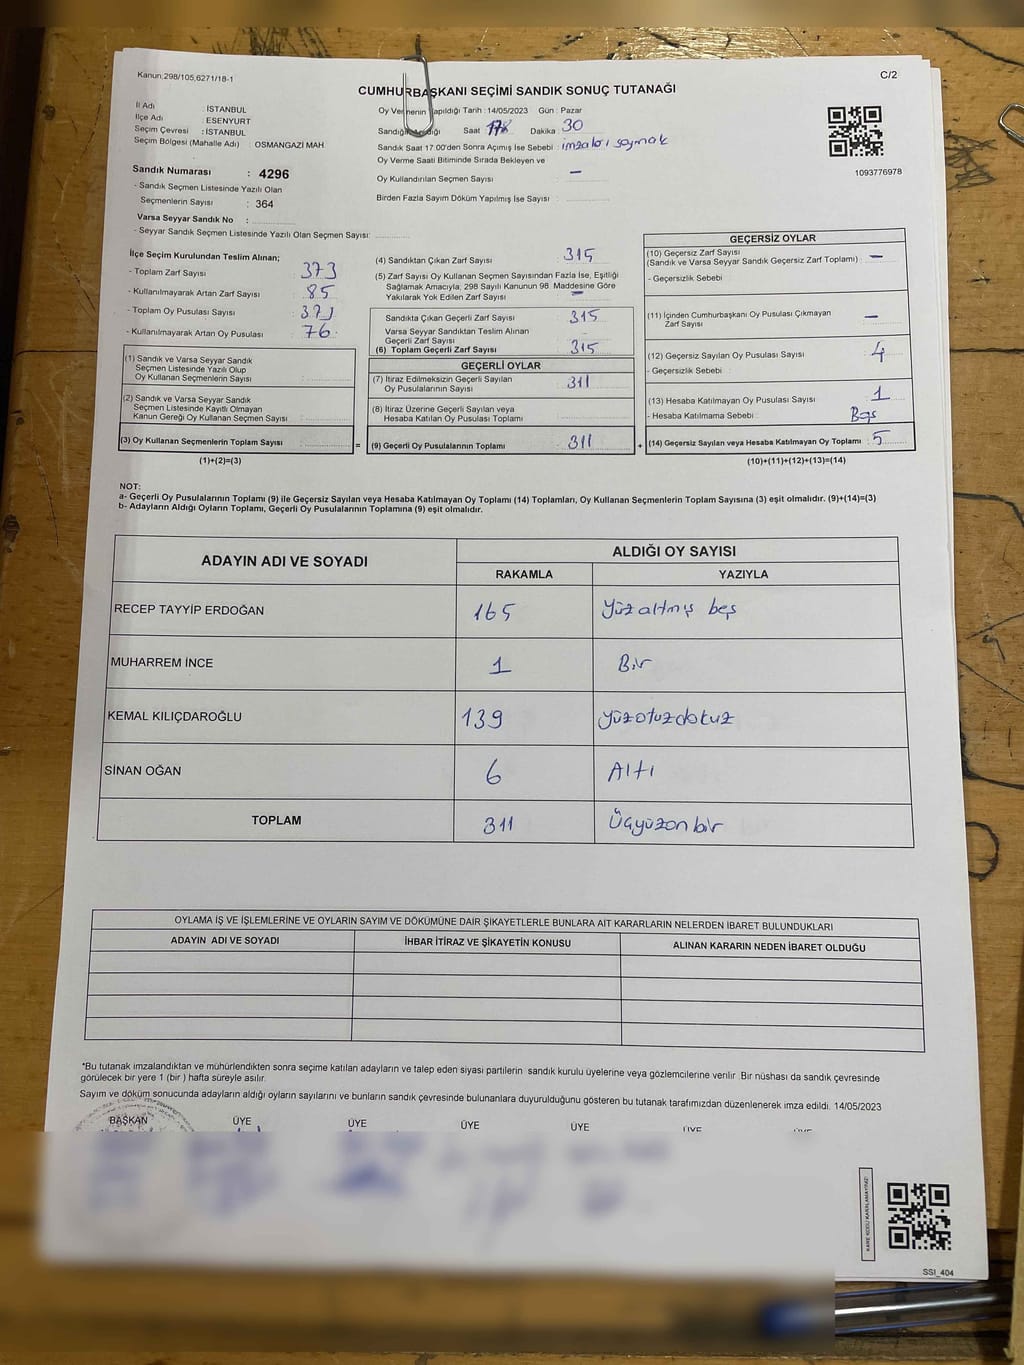 Kanun:298/105,6271/18-1
C/2
CUMHURBAŞKANI SEÇİMİ SANDIK SONUÇ TUTANAĞI
İl Adı : İSTANBUL
İlçe Adı : ESENYURT
Seçim Çevresi : İSTANBUL
Seçim Bölgesi (Mahalle Adı) OSMANGAZİ MAH
Oy Vermenin Yapıldığı Tarih : 14/05/2023 Gün : Pazar
Sandığın Açıldığı Saat Dakika : 30
Sandık Saat 17:00'den Sonra Açımış İse Sebebi : imzaları saymak
Oy Verme Saati Bitiminde Sırada Bekleyen ve
Oy Kullandırılan Seçmen Sayısı : —
Birden Fazla Sayım Döküm Yapılmış İse Sayısı :
1093776978
Sandık Numarası : 4296
- Sandık Seçmen Listesinde Yazılı Olan
Seçmenlerin Sayısı : 364
Varsa Seyyar Sandık No :
- Seyyar Sandık Seçmen Listesinde Yazılı Olan Seçmen Sayısı:
İlçe Seçim Kurulundan Teslim Alınan;
- Toplam Zarf Sayısı : 373
- Kullanılmayarak Artan Zarf Sayısı : 85
- Toplam Oy Pusulası Sayısı :
- Kullanılmayarak Artan Oy Pusulası : 76
(1) Sandık ve Varsa Seyyar Sandık
Seçmen Listesinde Yazılı Olup
Oy Kullanan Seçmenlerin Sayısı :
(2) Sandık ve Varsa Seyyar Sandık
Seçmen Listesinde Kayıtlı Olmayan
Kanun Gereği Oy Kullanan Seçmen Sayısı :
(3) Oy Kullanan Seçmenlerin Toplam Sayısı : =
(1)+(2)=(3)
(4) Sandıktan Çıkan Zarf Sayısı : 315
(5) Zarf Sayısı Oy Kullanan Seçmen Sayısından Fazla İse, Eşitliği
Sağlamak Amacıyla, 298 Sayılı Kanunun 98. Maddesine Göre
Yakılarak Yok Edilen Zarf Sayısı : —
Sandıkta Çıkan Geçerli Zarf Sayısı : 315
Varsa Seyyar Sandıktan Teslim Alınan
Geçerli Zarf Sayısı :
(6) Toplam Geçerli Zarf Sayısı : 315
GEÇERLİ OYLAR
(7) İtiraz Edilmeksizin Geçerli Sayılan
Oy Pusulalarının Sayısı : 311
(8) İtiraz Üzerine Geçerli Sayılan veya
Hesaba Katılan Oy Pusulası Toplamı :
(9) Geçerli Oy Pusulalarının Toplamı : 311 +
GEÇERSİZ OYLAR
(10) Geçersiz Zarf Sayısı
(Sandık ve Varsa Seyyar Sandık Geçersiz Zarf Toplamı) : —
- Geçersizlik Sebebi :
(11) İçinden Cumhurbaşkanı Oy Pusulası Çıkmayan
Zarf Sayısı : —
(12) Geçersiz Sayılan Oy Pusulası Sayısı : 4
- Geçersizlik Sebebi :
(13) Hesaba Katılmayan Oy Sayısı : 1
- Hesaba Katılmama Sebebi : Boş
(14) Geçersiz Sayılan veya Hesaba Katılmayan Oy Toplamı : 5
(10)+(11)+(12)+(13)=(14)
NOT:
a- Geçerli Oy Pusulalarının Toplamı (9) ile Geçersiz Sayılan veya Hesaba Katılmayan Oy Toplamı (14) Toplamları, Oy Kullanan Seçmenlerin Toplam Sayısına (3) eşit olmalıdır. (9)+(14)=(3)
b- Adayların Aldığı Oyların Toplamı, Geçerli Oy Pusulalarının Toplamına (9) eşit olmalıdır.
ADAYIN ADI VE SOYADI
ALDIĞI OY SAYISI
RAKAMLA YAZIYLA
RECEP TAYYİP ERDOĞAN 165 Yüz altmış beş
MUHARREM İNCE 1 Bir
KEMAL KILIÇDAROĞLU 139 yüzotuzdokuz
SİNAN OĞAN 6 Altı
TOPLAM 311 Üçyüzonbir
OYLAMA İŞ VE İŞLEMLERİNE VE OYLARIN SAYIM VE DÖKÜMÜNE DAİR ŞİKAYETLERLE BUNLARA AİT KARARLARIN NELERDEN İBARET BULUNDUKLARI
ADAYIN ADI VE SOYADI İHBAR İTİRAZ VE ŞİKAYETİN KONUSU ALINAN KARARIN NEDEN İBARET OLDUĞU
*Bu tutanak imzalandıktan ve mühürlendikten sonra seçime katılan adayların ve talep eden siyasi partilerin sandık kurulu üyelerine veya gözlemcilerine verilir. Bir nüshası da sandık çevresinde
görülecek bir yere 1 (bir ) hafta süreyle asılır.
Sayım ve döküm sonucunda adayların aldığı oyların sayılarını ve bunların sandık çevresinde bulunanlara duyurulduğunu gösteren bu tutanak tarafımızdan düzenlenerek imza edildi. 14/05/2023
BAŞKAN ÜYE ÜYE ÜYE ÜYE ÜYE ÜYE
KARE KODU KARALAMAYINIZ!
SSI_404